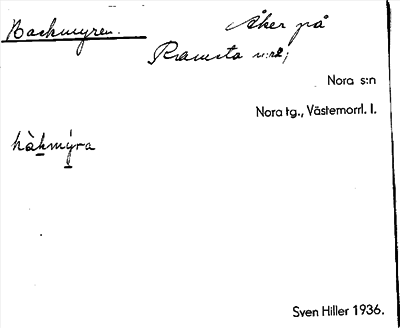 Backmyren. Åker på
Ramsta n:r2;
Nora s:n
Nora tg., Västernorrl. l.
bàkmýra
Sven Hiller 1936.